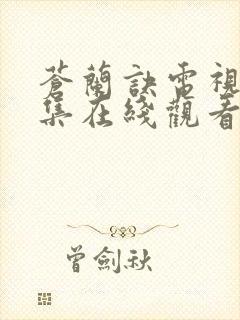 蒼蘭訣電視
集在綫觀看
曾劍秋